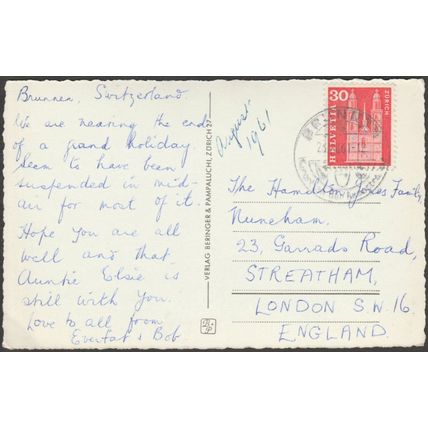 Brunnen, Switzerland.
We are nearing the end
of a grand holiday
Seem to have been
suspended in mid-
air for most of it.
Hope you are all
well and that
Auntie Elsie is
still with you.
Love to all from
& Bob
August
1961
VERLAG BERINGER & PAMPALUCHI, ZÜRICH 27
30
HELVETIA
ZÜRICH
BRUNNEN
The Hamilton Jones Family,
Nuneham.
23, Garrads Road,
STREATHAM,
LONDON S.W.16.
ENGLAND.